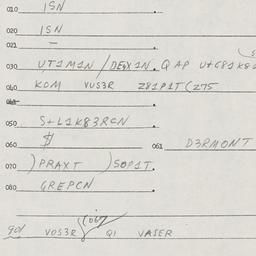 010 ISN
020 ISN
021 —
030 UT1M1N / DE8X1N. Q AP U+C81K8
040 KOM VUS3R Z81P1T(275
041
050 S+L1K83RCN
060 $ 061 D3RMONT
070 )PRAXT )SOP1T.
080 GREPCN
(067
901 VOS3R Q1 VASER